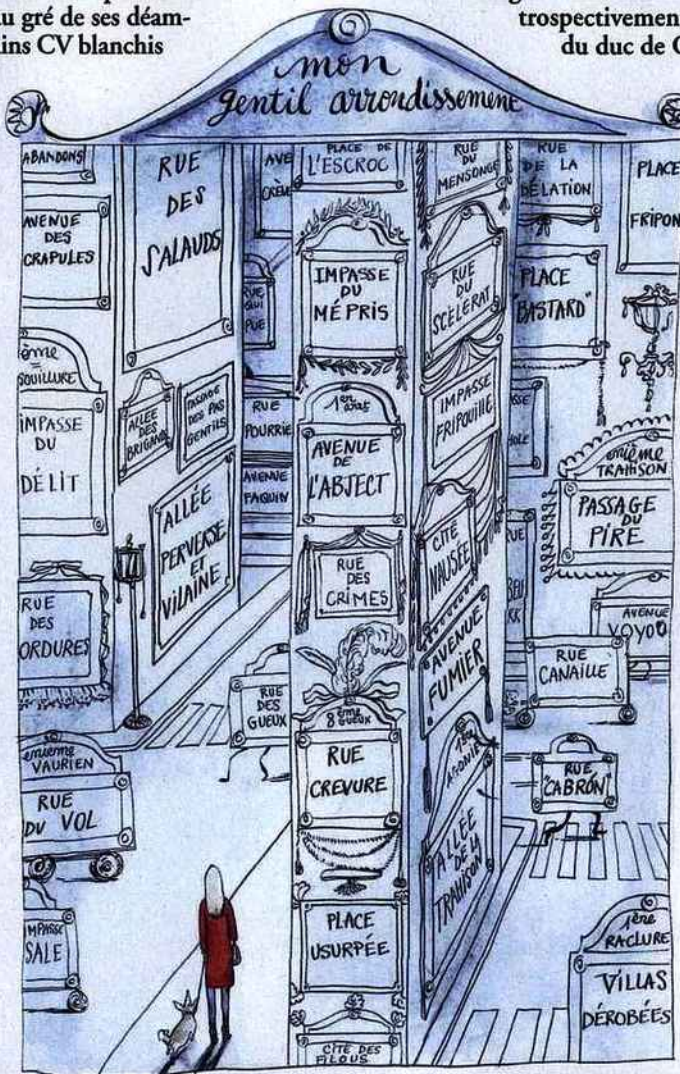 au gré de ses déam-
ains CV blanchis
trospectivement
du duc de
mon
gentil arrondissement
ABANDONS
AVENUE
DES
CRAPULES
ème
SOUILLURE
IMPASSE
DU
DÉLIT
RUE
DES
ORDURES
enième
VAURIEN
RUE
DU VOL
IMPASSE
SALE
RUE
DES
SALAUDS
ALLÉE
DES
BRIGANDS
PASSAGE
DES PAS
GENTILS
ALLÉE
PERVERSE
ET
VILAINE
AVE
RUE
QUI
PUE
RUE
POURRIE
AVENUE
FAQUIN
RUE
DES
GUEUX
PLACE DE
L'ESCROC
IMPASSE
DU
MÉPRIS
AVENUE
DE
L'ABJECT
RUE
DES
CRIMES
8ème
GUEUX
RUE
CREVURE
PLACE
USURPÉE
CITÉ DES
FILOUS
RUE
DU
MENSONGE
RUE
DU
SCÉLÉRAT
IMPASSE
FRIPOUILLE
CITÉ
NAUSÉE
AVENUE
FUMIER
AGONIE
ALLÉE
DE LA
TRAHISON
RUE
DE LA
DÉLATION
PLACE
"BASTARD"
RUE
BEU
RK
PLACE
FRIPON
enième
TRAHISON
PASSAGE
DU
PIRE
AVENUE
VOYOU
RUE
CANAILLE
RUE
"CABRÓN"
1ère
RACLURE
VILLAS
DÉROBÉES